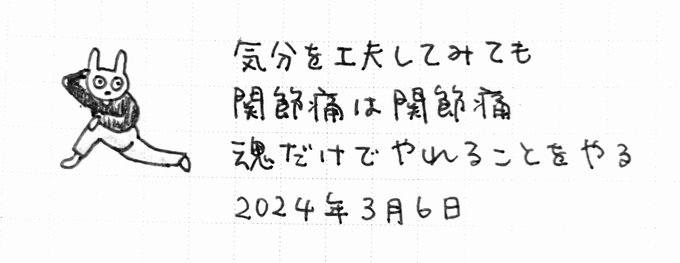 気分を工夫してみても
関節痛は関節痛
魂だけでやれることをやる
2024年3月6日